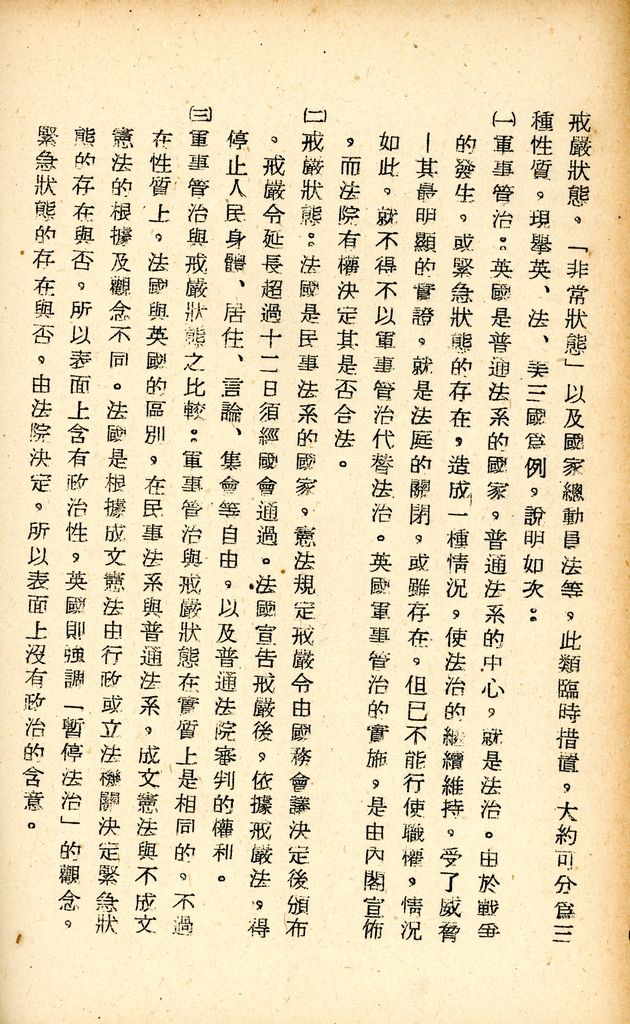 戒嚴狀態。「非常狀態」以及國家總動員法等，此類臨時措置，大約可分爲三
種性質，現舉英、法、美三國爲例，說明如次：
㈠軍事管治：英國是普通法系的國家，普通法系的中心，就是法治。由於戰爭
的發生，或緊急狀態的存在，造成一種情況，使法治的繼續維持，受了威脅
—其最明顯的實證，就是法庭的關閉，或雖存在，但已不能行使職權，情況
如此，就不得不以軍事管治代替法治。英國軍事管治的實施，是由內閣宣佈
，而法院有權決定其是否合法。
㈡戒嚴狀態：法國是民事法系的國家，憲法規定戒嚴令由國務會議決定後頒布
。戒嚴令延長超過十二日須經國會通過。法國宣告戒嚴後，依據戒嚴法，得
停止人民身體、居住、言論、集會等自由，以及普通法院審判的權利。
㈢軍事管治與戒嚴狀態之比較：軍事管治與戒嚴狀態在實質上是相同的，不過
在性質上，法國與英國的區別，在民事法系與普通法系，成文憲法與不成文
憲法的根據及觀念不同。法國是根據成文憲法由行政或立法機關決定緊急狀
態的存在與否，所以表面上含有政治性，英國則強調「暫停法治」的觀念，
緊急狀態的存在與否，由法院決定，所以表面上沒有政治的含意。